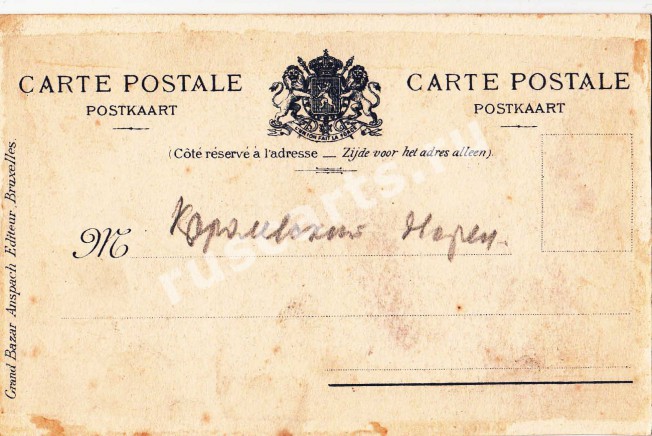 CARTE POSTALE
POSTKAART
L'UNION FAIT LA FORCE
CARTE POSTALE
POSTKAART
(Côté réservé à l'adresse — Zijde voor het adres alleen).
M
Grand Bazar Anspach Editeur Bruxelles.